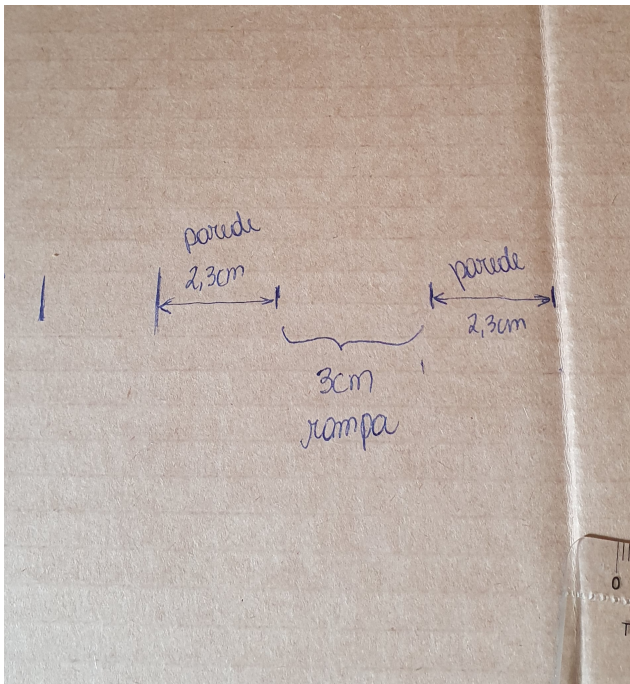 parede
2,3cm
parede
2,3cm
3cm
rampa
0